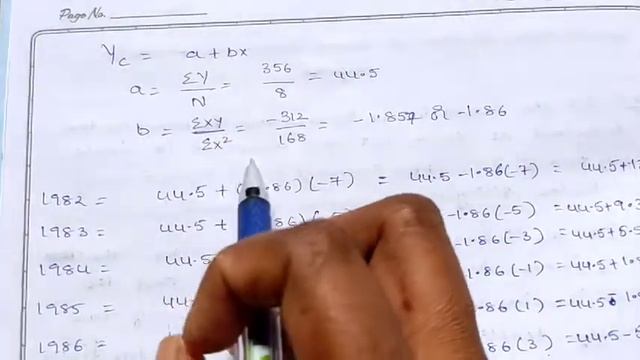 Page No.
Yc = a + bx
a = ΣY/N = 356/8 = 44.5
b = ΣXY/ΣX² = -312/168 = -1.857 or -1.86
1982 = 44.5 + (.86) (-7) = 44.5 - 1.86(-7) = 44.5+1
1983 = 44.5 + 86) = -1.86(-5) = 44.5+9.3
1984 = 44.5 -1.86(-3) = 44.5+5.5
1985 = 44 1.86(-1) = 44.5+1.
1986 = 86(1) = 44.5
86(3) = 44.5-